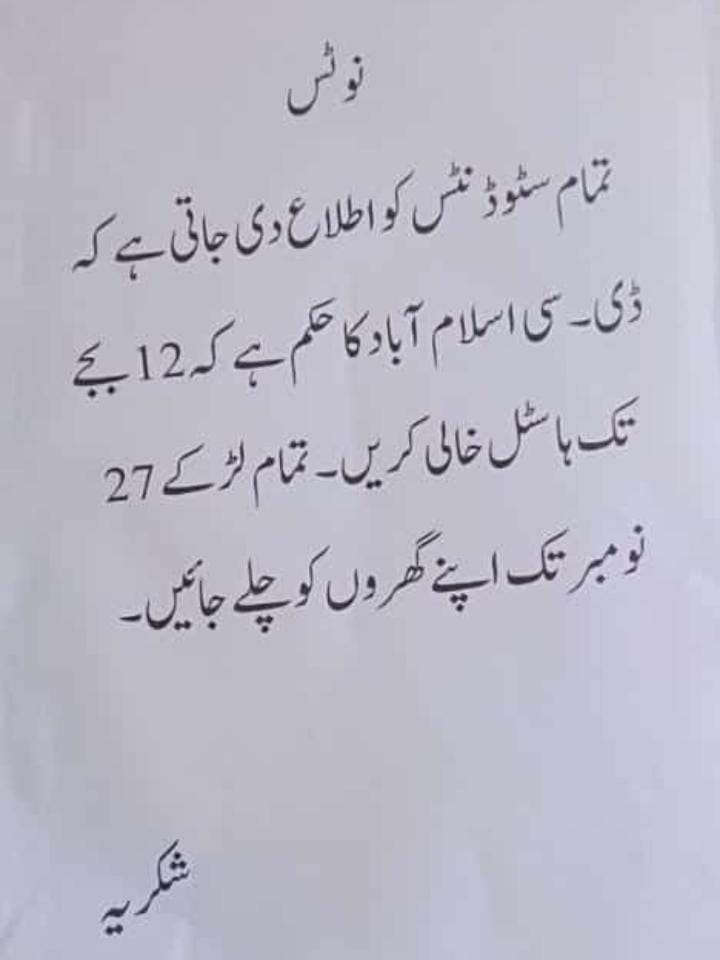 نوٹس
تمام سٹوڈنٹس کو اطلاع دی جاتی ہے کہ
ڈی۔ سی اسلام آباد کا حکم ہے کہ 12 بجے
تک ہاسٹل خالی کریں۔ تمام لڑکے 27
نومبر تک اپنے گھروں کو چلے جائیں۔
شکریہ